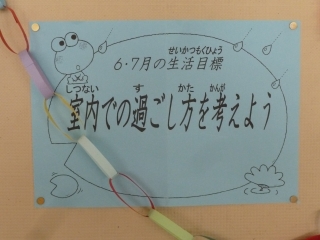 せいかつもくひょう
6・7月の生活目標
しつない す かた かんが
室内での過ごし方を考えよう